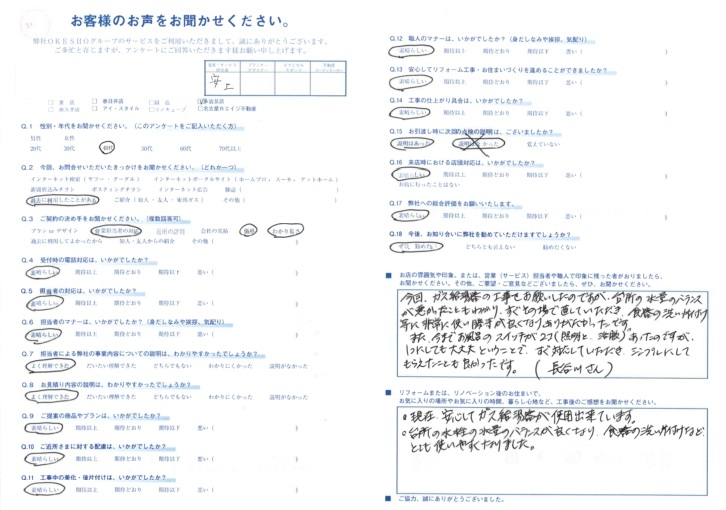 お客様のお声をお聞かせください。
弊社OKESHOグループのサービスをご利用いただきまして、誠にありがとうございます。
ご多忙と存じますが、アンケートにご回答いただきます様お願い申し上げます。
営業・サービス
プランナー
メディカル
不動産
井上
東店
春日井店
緑店
多治見店
アイ・スタイル
リノキューブ
名古屋エイジ不動産
Q.1 性別・年代をお聞かせください。(このアンケートをご記入いただく方)
男性 女性
20代 30代 40代 50代 60代 70代以上
Q.2 今回、お問合せいただいたきっかけをお聞かせください。(どれか一つ)
インターネット検索(ヤフー・グーグル) インターネットポータルサイト(ホームプロ、スーモ、アットホーム)
新聞折込みチラシ ポスティングチラシ インターネット広告 雑誌( )
過去に利用したことがある ご紹介(知人・友人・東邦ガス) その他( )
Q.3 ご契約の決め手をお聞かせください。(複数回答可)
プラン or デザイン 営業担当者の対応 近所の評判 会社の信頼 価格 わかり易さ
過去に利用してよかったから 知人・友人からの紹介 その他( )
Q.4 受付時の電話対応は、いかがでしたか?
素晴らしい 期待以上 期待どおり 期待以下 悪い( )
Q.5 担当者の対応は、いかがでしたか?
素晴らしい 期待以上 期待どおり 期待以下 悪い( )
Q.6 担当者のマナーは、いかがでしたか?(身だしなみや挨拶、気配り)
素晴らしい 期待以上 期待どおり 期待以下 悪い( )
Q.7 担当者による弊社の事業内容についての説明は、わかりやすかったでしょうか?
よく理解できた だいたい理解できた どちらでもない わかりにくかった 説明がなかった
Q.8 お見積り内容の説明は、わかりやすかったでしょうか?
よく理解できた だいたい理解できた どちらでもない わかりにくかった 説明がなかった
Q.9 ご提案の商品やプランは、いかがでしたか?
素晴らしい 期待以上 期待どおり 期待以下 悪い( )
Q.10 ご近所さまに対する配慮は、いかがでしたか?
素晴らしい 期待以上 期待どおり 期待以下 悪い( )
Q.11 工事中の養化・後片付けは、いかがでしたか?
素晴らしい 期待以上 期待どおり 期待以下 悪い( )
Q.12 職人のマナーは、いかがでしたか?(身だしなみや挨拶、気配り)
素晴らしい 期待以上 期待どおり 期待以下 悪い( )
Q.13 安心してリフォーム工事・お住まいづくりを進めることができましたか?
素晴らしい 期待以上 期待どおり 期待以下 悪い( )
Q.14 工事の仕上がり具合は、いかがでしたか?
素晴らしい 期待以上 期待どおり 期待以下 悪い( )
Q.15 お引渡し時に次回の点検の説明は、ございましたか?
説明はあった 説明はなかった 覚えていない
Q.16 来店時における店頭対応は、いかがでしたか?
素晴らしい 期待以上 期待どおり 期待以下 悪い( )
お店に行ったことはない
Q.17 弊社への総合評価をお願いいたします。
素晴らしい 期待以上 期待どおり 期待以下 悪い( )
Q.18 今後、お知り合いに弊社を勧めていただけますでしょうか?
ぜひ、勧めたい どちらとも言えない 勧めたくない
■ お店の雰囲気や印象、または、営業(サービス)担当者や職人で印象に残った者がおりましたら、
お聞かせください。その他、ご要望・ご意見などございましたら、ぜひ、お聞かせください。
今回、ガス給湯器の工事をお願いしたのですが、台所の水栓のバランス
が悪かったこともわかり、すぐその場で直していただき、食器の洗い片付け
等に非常に使い勝手が良くなりありがたかったです。
また、今までお風呂のスイッチが2コ(照明と、 )あったのですが、
1コにしても大丈夫ということで、すぐ対応していただき、シンプルにして
もらえたことも良かったです。 (長谷川さん)
■ リフォームまたは、リノベーション後のお住まいで、
お気に入りの場所やお気に入りの時間、暮らし心地など、工事後のご感想をお聞かせください。
○現在、安心してガス給湯器が使用出来ています。
○台所の水栓の水量のバランスが良くなり、食器の洗い片付けなど
とても使いやすくなりました。
■ ご協力、誠にありがとうございました。